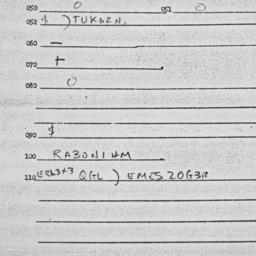 050 0 051 0
052 $ ) TUKSEN.
060 —
070 +
080 0
090 $
100 RABONI HM
110 ) EMES 20G3R